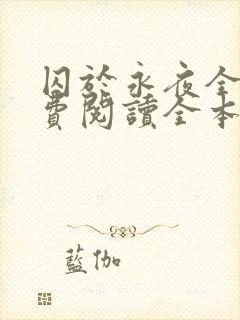 囚於永夜全
費閱讀全本
藍伽